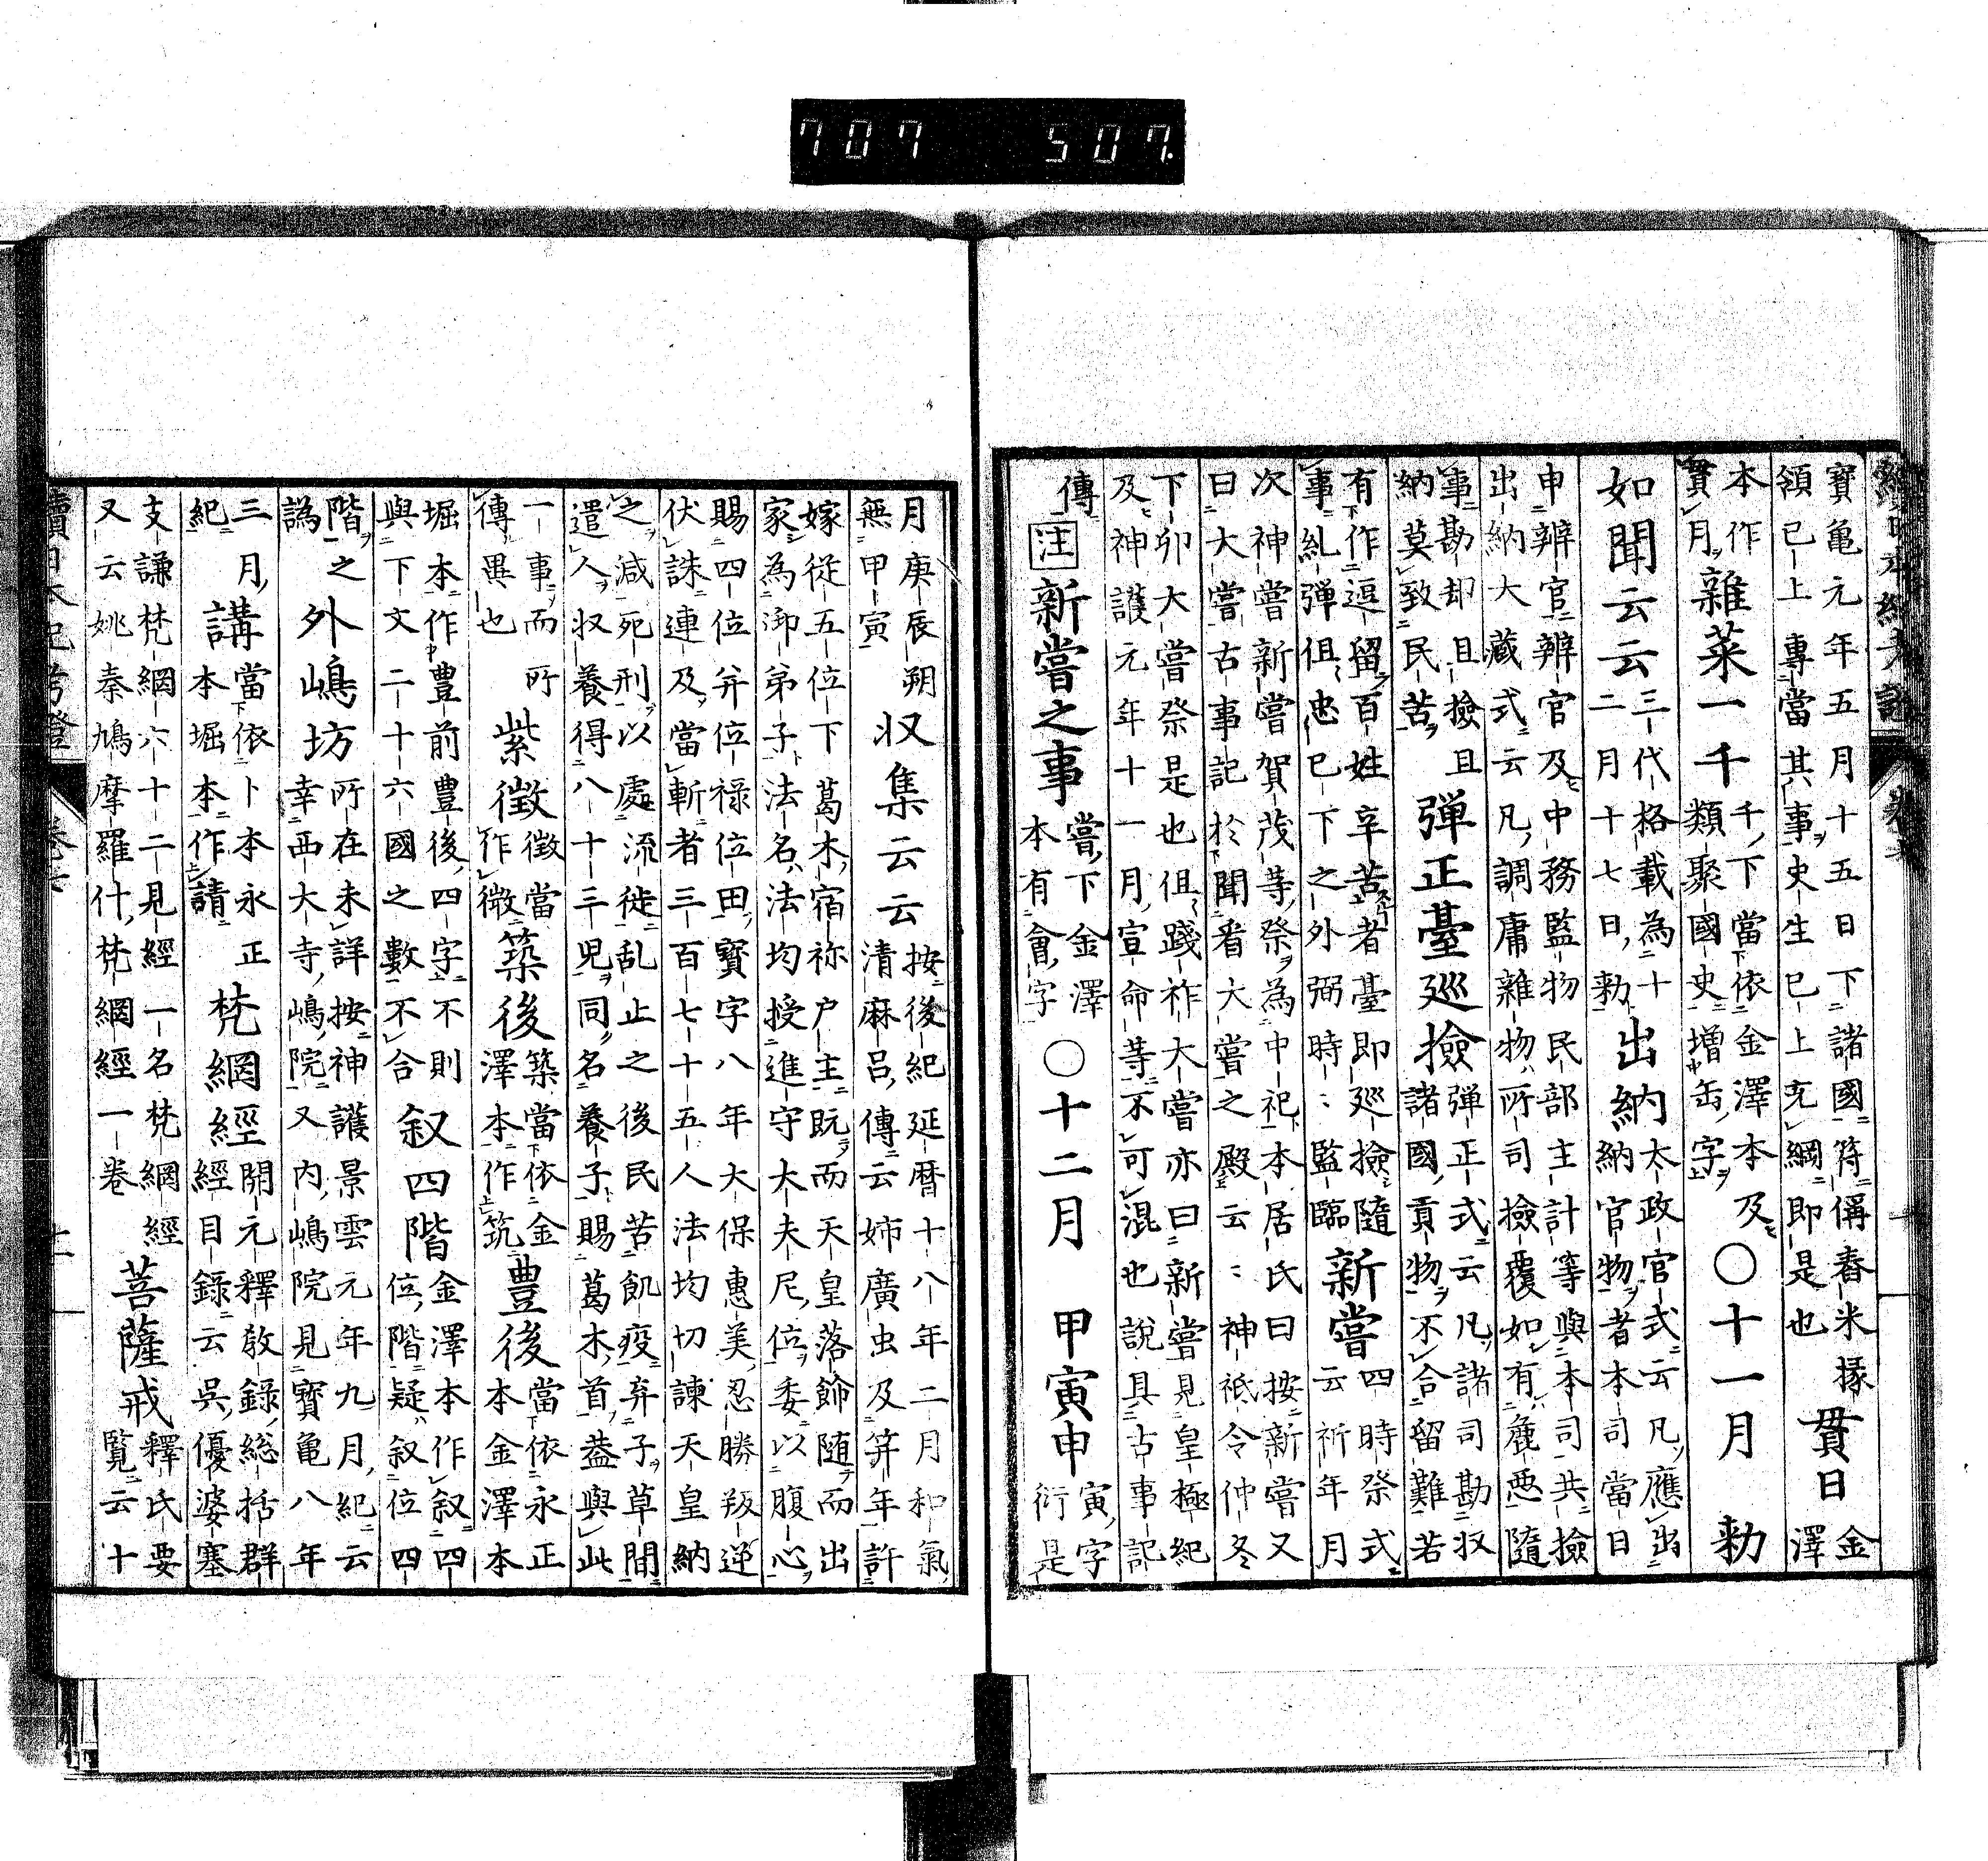 707 507.
寶亀元年五月十五日下諸國符偁舂米掾
領已上專當其事史生已上充綱即是也
貫日
金
澤
本作
貫月
雜菜一千
千下當依金澤本及
類聚國史増缶字
○十一月
勅
如聞云云
三代格載為十
二月十七日勅
出納
太政官式云凡應出
納官物者本司當日
申辨官辨官及中務監物民部主計等與本司共撿
出納大藏式云凡調庸雜物所司撿覆如有麁悪隨
事勘却且撿且
納莫致民苦
弾正臺巡撿
弾正式云凡諸司勘収
諸國貢物不合留難若
有作逗留百姓辛苦者臺即巡撿隨
事糺弾但忠已下之外弼時〻監臨
新嘗
四時祭式
云祈年月
次神嘗新嘗賀茂等祭為中祀本居氏曰按新嘗又
曰大嘗古事記於聞看大嘗之殿云〻神祇令仲冬
下卯大嘗祭是也但踐祚大嘗亦曰新嘗見皇極紀
及神護元年十一月宣命等不可混也說具古事記
傳
注
新嘗之事
嘗下金澤
本有會字
○十二月
甲寅申
寅字
衍是
月庚辰朔
無甲寅
収集云云
按後紀延暦十八年二月和氣
清麻呂傳云姉廣虫及笄年許
嫁從五位下葛木宿祢戸主既而天皇落餝随而出
家為御弟子法名法均授進守大夫尼位委以腹心
賜四位并位禄位田寶字八年大保惠美忍勝叛逆
伏誅連及當斬者三百七十五人法均切諫天皇納
之減死刑以處流徙乱止之後民苦飢疫弃子草間
遣人収養得八十三児同名養子賜葛木首蓋與此
一事而所
傳異也
紫徴
徴當
作微
築後
築當依金
澤本作筑
豊後
當依永正
本金澤本
堀本作豊前豊後四字不則
與下文二十六國之數不合
叙四階
金澤本作叙四
位階疑叙位四
階之
譌
外嶋坊
所在未詳按神護景雲元年九月紀云
幸西大寺嶋院又内嶋院見寶亀八年
三月
紀
講
當依卜本永正
本堀本作請
梵網經
開元釋教錄総括群
經目錄云呉優婆塞
支謙梵網六十二見經一名梵網經
又云姚秦鳩摩羅什梵網經一卷
菩薩戒
釋氏要
覧云十